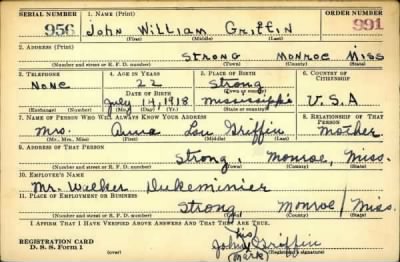 SERIAL NUMBER 1. NAME (Print) ORDER NUMBER
956 John William Griffin 991
(First) (Middle) (Last)
2. ADDRESS (Print)
Strong Monroe Miss
(Number and street or R. F. D. number) (Town) (County) (State)
3. TELEPHONE 4. AGE IN YEARS 5. PLACE OF BIRTH 6. COUNTRY OF CITIZENSHIP
None 22 Strong
DATE OF BIRTH (Town or county)
July 14, 1918 Mississippi U.S.A
(Exchange) (Number) (Mo.) (Day) (Yr.) (State or country)
7. NAME OF PERSON WHO WILL ALWAYS KNOW YOUR ADDRESS 8. RELATIONSHIP OF THAT PERSON
Mrs. Anna Lou Griffin Mother
(Mr., Mrs., Miss) (First) (Middle) (Last)
9. ADDRESS OF THAT PERSON
Strong, Monroe, Miss.
(Number and street or R. F. D. number) (Town) (County) (State)
10. EMPLOYER'S NAME
Mr. Walker Dukeminier
11. PLACE OF EMPLOYMENT OR BUSINESS
Strong Monroe Miss.
(Number and street or R. F. D. number) (Town) (County) (State)
I AFFIRM THAT I HAVE VERIFIED ABOVE ANSWERS AND THAT THEY ARE TRUE.
his
REGISTRATION CARD John Griffin
D. S. S. Form 1 (over) (Mark)